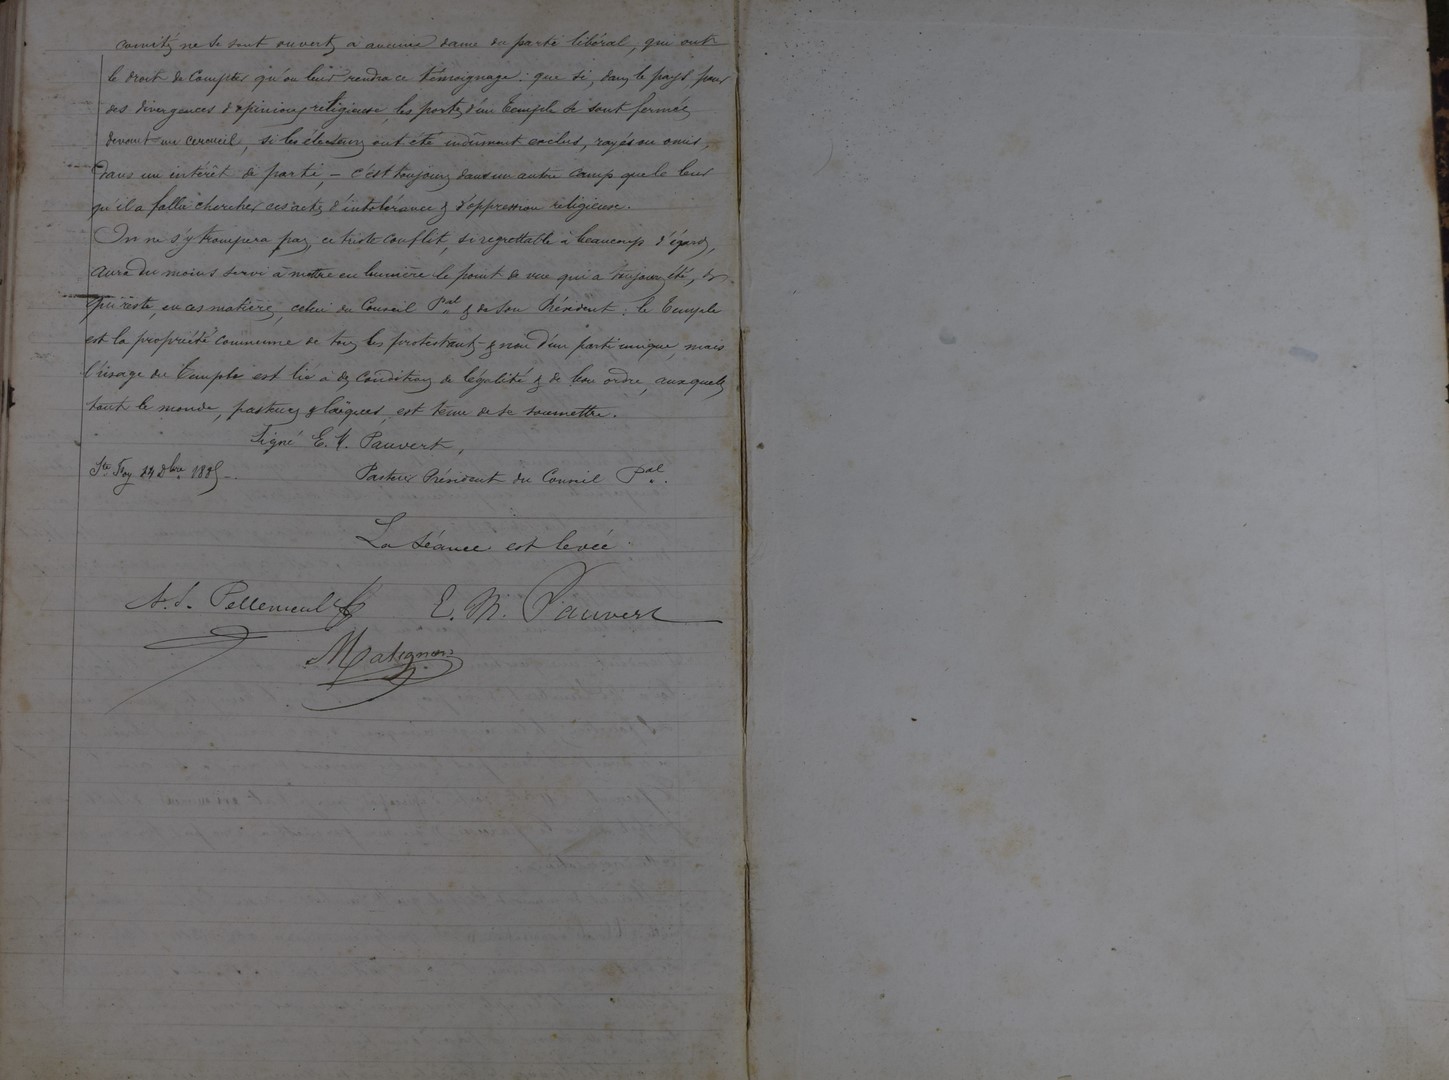 comités ne se sont ouverts à aucune dame du parti libéral, qui ont
le droit de compter qu'on leur rendra ce témoignage: que si, dans le pays, pour
des divergences d'opinions religieuses, les portes d'un Temple se sont fermées
devant un cercueil, si les électeurs ont été indûment exclus, rayés ou omis,
dans un intérêt de parti, – c'est toujours dans un autre camp que le leur
qu'il a fallu chercher ces actes d'intolérance & d'oppression religieuse.
On ne s'y trompera pas, ce triste conflit, si regrettable à beaucoup d'égards,
aura du moins servi à mettre en lumière le point de vue qui a toujours été, &
qui reste, en ces matières, celui du Conseil Pal & de son Président: le Temple
est la propriété commune de tous les protestants & non d'un parti unique, mais
l'usage du Temple est lié à des conditions de légalité & de bon ordre, auxquelles
tout le monde, pasteurs & laïques, est tenu de se soumettre.
Signé E. M. Pauvert,
Ste Foy 24 Xbre
Pasteur Président du Conseil Pal.
La séance est levée.
E. M. Pauvert
Matignon